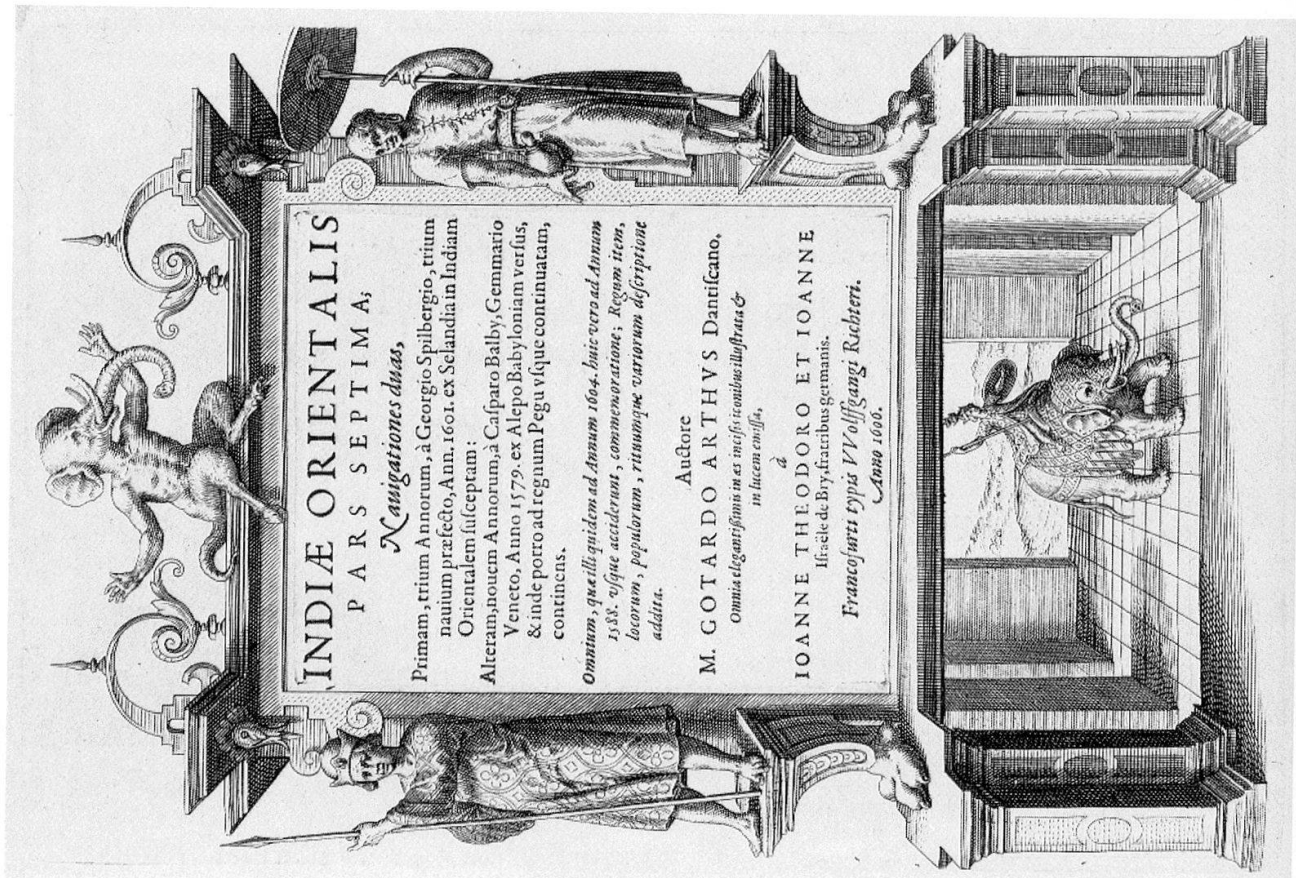 INDIÆ ORIENTALIS
PARS SEPTIMA;
Nauigationes duas,
Primam, trium Annorum, à Georgio Spilbergio, trium
nauium præfecto, Ann. 1601. ex Selandia in Indiam
Orientalem ſuſceptam:
Alteram, nouem Annorum, à Caſparo Balby, Gemmario
Veneto, Anno 1579. ex Alepo Babyloniam verſus,
& inde porro ad regnum Pegu vſque continuatam,
continens.
Omnium, quæ illi quidem ad Annum 1604. huic vero ad Annum
1588. vſque acciderunt, commemoratione; Regum item,
locorum, populorum, rituumque variorum deſcriptione
addita.
Auctore
M. GOTARDO ARTHVS Dantiſcano,
Omnia elegantiſſimis in æs inciſis iconibus illuſtrata &
in lucem emiſſa,
à
IOANNE THEODORO ET IOANNE
Iſraële de Bry, fratribus germanis.
Francofurti typis VVolffgangi Richteri.
Anno 1606.